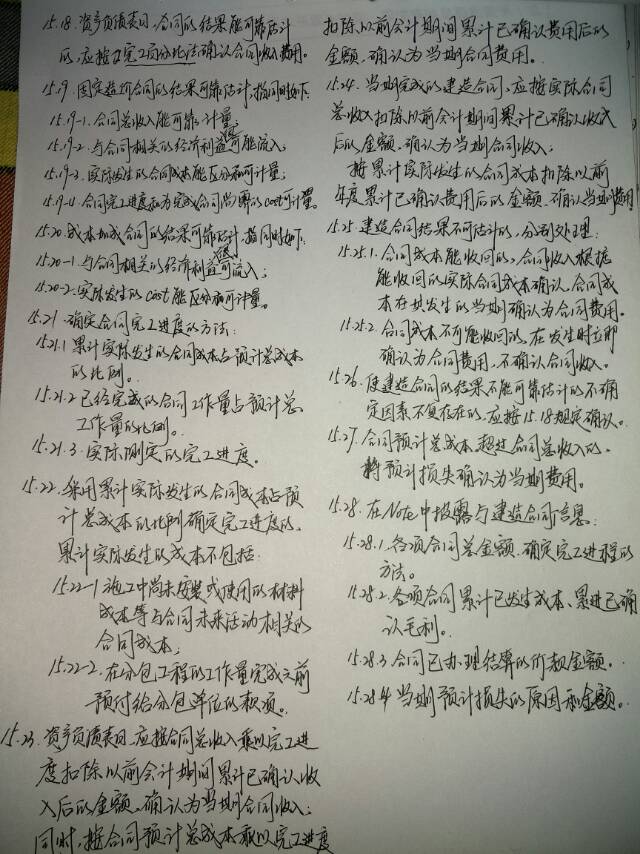 15.18. 资产负债表日,合同的结果能可靠估计
的,应按照完工百分比法确认合同收入费用。
15.19. 固定造价合同的结果可靠估计,指同时如下:
15.19-1. 合同总收入能可靠计量;
15.19-2. 与合同相关的经济利益很可能流入;
15.19-3. 实际发生的合同成本能区分和可计量;
15.19-4. 合同完工进度和为完成合同尚需的cost可计量。
15.20. 成本加成合同的结果可靠估计,指同时如下:
15.20-1. 与合同相关的经济利益很可流入;
15.20-2. 实际发生的cost能区分和可计量。
15.21. 确定合同完工进度的方法:
15.21.1 累计实际发生的合同成本占预计总成本
的比例。
15.21.2 已经完成的合同工作量占预计总
工作量的比例。
15.21.3. 实际测定的完工进度。
15.22. 采用累计实际发生的合同成本占预
计总成本的比例确定完工进度的,
累计实际发生的成本不包括:
15.22-1 施工中尚未安装或使用的材料
成本等与合同未来活动相关的
合同成本;
15.22-2. 在分包工程的工作量完成之前
预付给分包单位的款项。
15.23. 资产负债表日,应按合同总收入乘以完工进
度扣除以前会计期间累计已确认收
入后的金额,确认为当期合同收入;
同时,按合同预计总成本乘以完工进度
扣除以前会计期间累计已确认费用后的
金额,确认为当期合同费用。
15.24. 当期完成的建造合同,应按实际合同
总收入扣除以前会计期间累计已确认收入
后的金额,确认为当期合同收入;
按累计实际发生的合同成本扣除以前
年度累计已确认费用后的金额,确认当期费用
15.25. 建造合同结果不可估计的,分别处理:
15.25.1. 合同成本能收回的,合同收入根据
能收回的实际合同成本确认,合同成
本在其发生的当期确认为合同费用。
15.25.2. 合同成本不可能收回的,在发生时立即
确认为合同费用,不确认合同收入。
15.26. 使建造合同的结果不能可靠估计的不确
定因素不复存在的,应按15.18规定确认。
15.27. 合同预计总成本超过合同总收入的,
将预计损失确认为当期费用。
15.28. 在Note中披露与建造合同信息:
15.28.1. 各项合同总金额,确定完工进程的
方法。
15.28.2. 各项合同累计已发生成本、累进已确
认毛利。
15.28.3 合同已办理结算的价款金额。
15.28.4 当期预计损失的原因和金额。